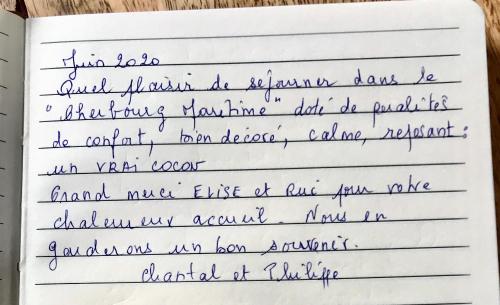 Juin 2020
Quel plaisir de sejourner dans le
"Cherbourg Maritime" doté de qualités
de confort, bien décoré, calme, reposant :
un VRAI COCON
Grand merci ELISE et pour votre
chaleureux accueil. Nous en
garderons un bon souvenir.
Chantal et Philippe